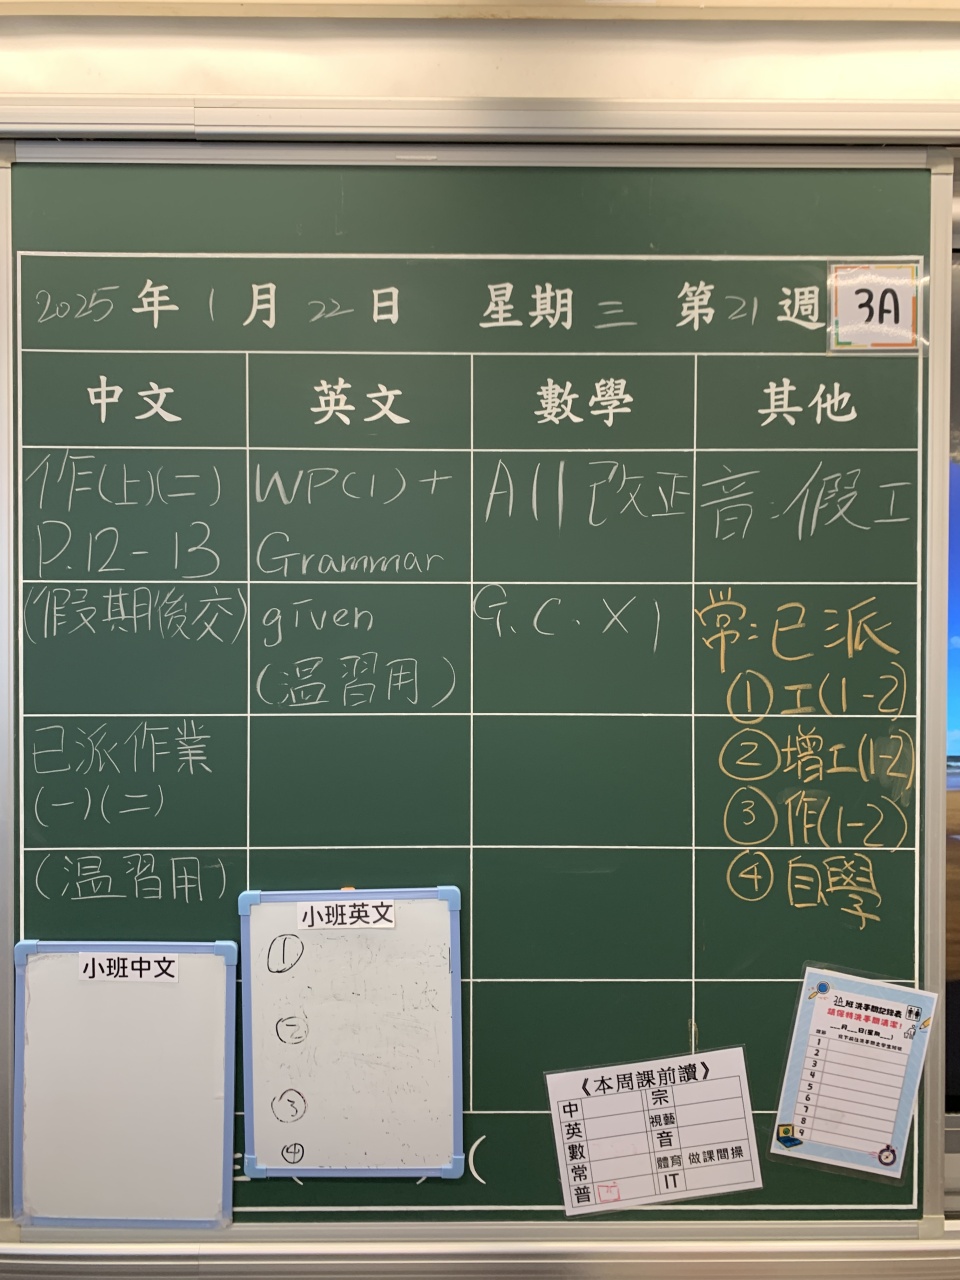 2025年1月22日 星期三 第21週 3A
中文
作(上)(二)
P.12-13
(假期後交)
已派作業
(一)(二)
(温習用)
英文
WP(1)+
Grammar
given
(温習用)
數學
All 改正
G.C.X1
其他
音:假工
常:已派
①工(1-2)
②增工(1-2)
③作(1-2)
④自學
小班中文
小班英文
①
②
③
④
(
《本周課前讀》
中 宗
英 視藝
數 音
常 體育 做課間操
普 IT
3A班洗手間記錄表
請保持洗手間清潔!
__月__日(星期__)
1
2
3
4
5
6
7
8
9